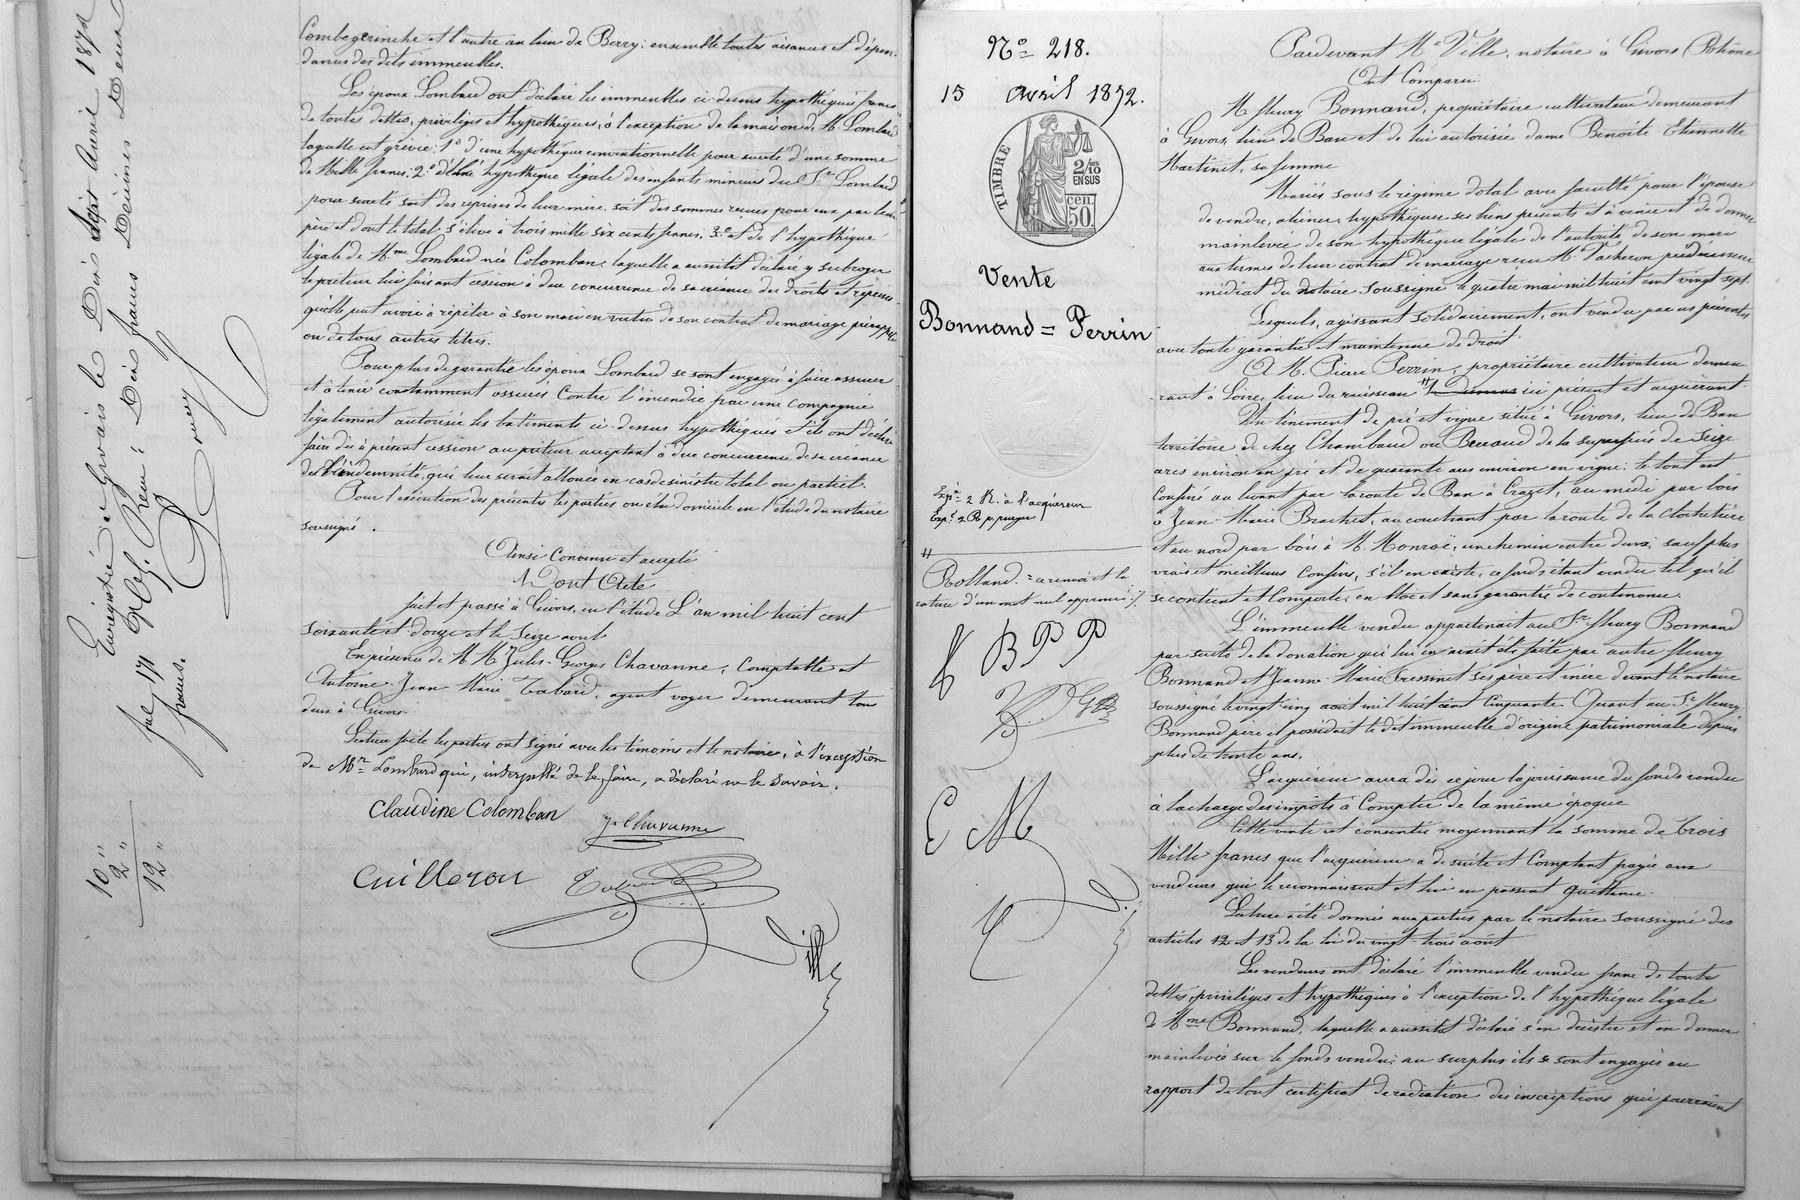 Combegerinche et l'autre au lieu de Berry; ensemble toutes aisances et dépen-
dances des dits immeubles.
Les époux Lombard ont déclaré les immeubles ci-dessus hypothéqués francs
de toutes dettes, privilèges et hypothèques, à l'exception de la maison de M. Lombard
laquelle est grevée: 1° d'une hypothèque conventionnelle pour sureté d'une somme
de Mille francs; 2° de hypothèque légale des enfants mineurs du Sr. Lombard
pour sureté soit des reprises de leur mère, soit des sommes reçues pour eux par leur
père et dont le total s'élève à trois mille six cents francs; 3° et de l'hypothèque
légale de Mme Lombard née Colomban, laquelle a aussitôt déclaré y subroger
le prêteur lui faisant cession à due concurrence de sa créance des droits et reprises
qu'elle peut avoir à répéter à son mari en vertu de son contrat de mariage précité
ou de tous autres titres.
Pour plus de garantie les époux Lombard se sont engagés à faire assurer
et à tenir constamment assurés Contre l'incendie par une Compagnie
légalement autorisée les batiments ci-dessus hypothéqués et ils ont déclaré
faire dès à présent cession au prêteur acceptant à due concurrence de sa créance
de l'indemnité qui leur serait allouée en cas de sinistre total ou partiel.
Pour l'exécution des présentes les parties ont élu domicile en l'étude du notaire
soussigné.
Ainsi Convenu et accepté
Dont Acte
fait et passé à Givors, en l'étude L'an mil huit cent
soixante et douze et le seize avril
En présence de MM. Jules-Georges Chavanne, Comptable et
Antoine-Jean Marie Tabard, agent voyer demeurant tous
deux à Givors
Lecture faite les parties ont signé avec les témoins et le notaire, à l'exception
de Mr Lombard qui, interpellé de le faire, a déclaré ne le savoir.
Claudine Colomban
J. Chavanne
Cuilleron
Ville
Enregistré à Givors le Dix Sept Avril 1872
fol 171 Reçu: Dix francs Décimes Deux
francs.
10 "
2 "
12 "
N° 218.
15 avril 1872.
TIMBRE
2/10
EN SUS
50 cen.
Vente
Bonnand = Perrin
Exp. 2 R. à l'acquéreur
//
Rolland. = ce renvoi et la
rature d'un mot nul approuvés /.
B P P
E M
Pardevant Me Ville, notaire à Givors (Rhône
Ont Comparu:
M. fleury Bonnand, propriétaire cultivateur demeurant
à Givors, lieu de Ban et de lui autorisée dame Benoîte Etiennette
Martinet, sa femme
Mariés sous le régime dotal avec faculté pour l'épouse
de vendre, aliéner, hypothéquer ses biens présents et à venir et de donner
mainlevée de son hypothèque légale de l'autorité de son mari
aux termes de leur contrat de mariage reçu Me Vacheron prédécesseur
médiat du notaire soussigné le quatre mai mil huit cent vingt sept.
Lesquels, agissant solidairement, ont vendu par ces présentes
avec toute garantie et maintenue de droit
A M. Pierre Perrin, propriétaire cultivateur demeu-
rant à Loire, lieu du ruisseau // ici présent et acquérant
Un tènement de pré et vigne situé à Givors, lieu de Ban
territoire de chez Chambaud ou Benaud de la superficie de Seize
ares environ en pré et de quarante ares environ en vigne; le tout est
Confiné au levant par la route de Ban à Crazet, au midi par bois
à Jean-Marie Brachet, au couchant par la route de la Clochetière
et au nord par bois à M. Monroë, un chemin entre deux, sauf plus
vrais et meilleurs Confins, s'il en existe, ce fonds étant vendu tel qu'il
se contient et Comporte, en bloc et sans garantie de contenance.
L'immeuble vendu appartenait au Sr fleury Bonnand
par suite de la donation qui lui en avait été faite par autre fleury
Bonnand et Jeanne-Marie Fressinet ses père et mère devant le notaire
soussigné le vingt cinq août mil huit cent Cinquante. Quant au Sr fleury
Bonnand père il possédait le dit immeuble d'origine patrimoniale depuis
plus de trente ans.
L'acquéreur aura dès ce jour la jouissance du fonds vendu
à la charge des impôts à Compter de la même époque
Cette vente est consentie moyennant la somme de trois
Mille francs que l'acquéreur a de suite et Comptant payée aux
vendeurs qui le reconnaissent et lui en passent quittance.
Lecture a été donnée aux parties par le notaire soussigné des
articles 12 et 13 de la loi du vingt-trois août
Les vendeurs ont déclaré l'immeuble vendu franc de toutes
dettes, privilèges et hypothèques à l'exception de l'hypothèque légale
de Mme Bonnand, laquelle a aussitôt déclaré s'en désister et en donner
mainlevée sur le fonds vendu; au surplus ils se sont engagés au
rapport de tout certificat de radiation des inscriptions qui pourraient